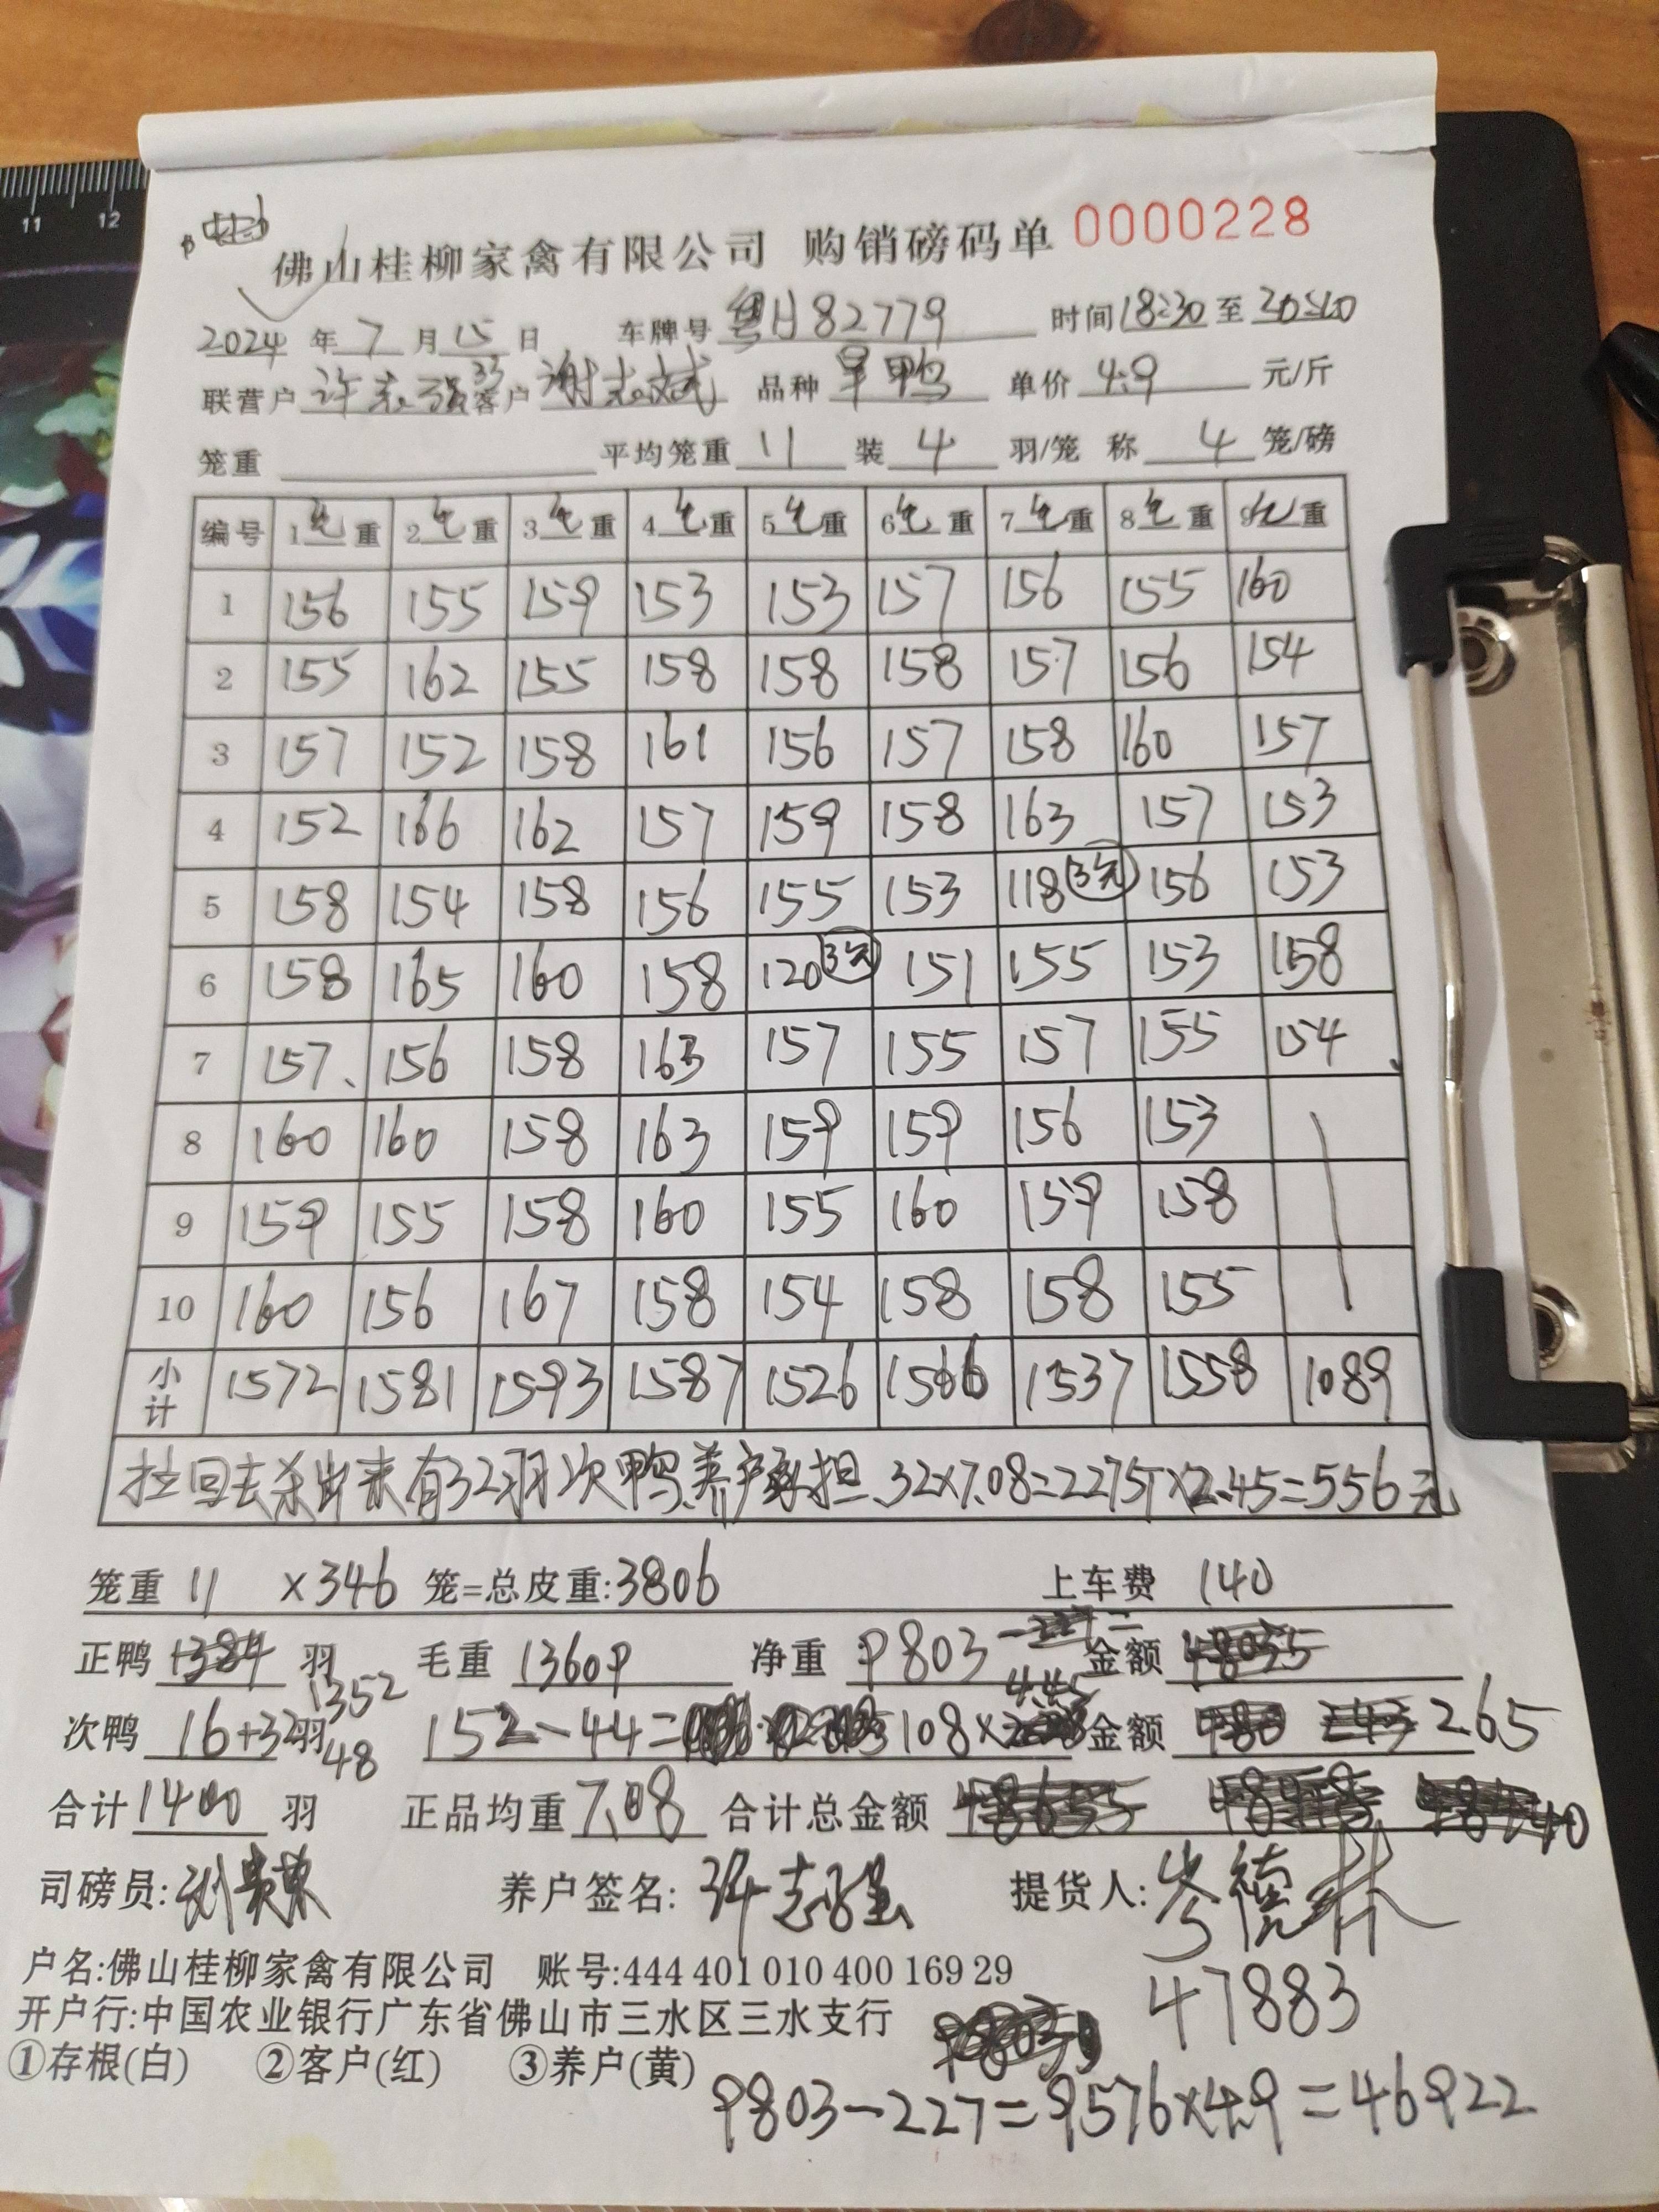 11 12
佛山桂柳家禽有限公司 购销磅码单 0000228
2024 年 7 月 15 日 车牌号 粤H82779 时间 18:30 至 20:10
联营户 许志强 33 客户 谢志斌 品种 旱鸭 单价 4.9 元/斤
笼重 平均笼重 11 装 4 羽/笼 称 4 笼/磅
编号 1 毛 重 2 毛 重 3 毛 重 4 毛 重 5 毛 重 6 毛 重 7 毛 重 8 毛 重 9 毛 重
1 156 155 159 153 153 157 156 155 160
2 155 162 155 158 158 158 157 156 154
3 157 152 158 161 156 157 158 160 157
4 152 166 162 157 159 158 163 157 153
5 158 154 158 156 155 153 118 3元 156 153
6 158 165 160 158 120 3元 151 155 153 158
7 157、 156 158 163 157 155 157 155 154
8 160 160 158 163 159 159 156 153
9 159 155 158 160 155 160 159 158
10 160 156 167 158 154 158 158 155
小计 1572 1581 1593 1587 1526 1566 1537 1558 1089
拉回去杀出来有32羽次鸭.养户承担.32×7.08=227斤×2.45=556元
笼重 11 ×346 笼=总皮重:3806 上车费 140
正鸭 1384 羽 1352 毛重 13609 净重 9803 -227= 金额 48035
次鸭 16+32 羽 48 152-44= 108× 4.45 金额 265
合计 1400 羽 正品均重 7.08 合计总金额 48655
司磅员: 刘贵荣 养户签名: 许志强 提货人: 岑德林
户名:佛山桂柳家禽有限公司 账号:444 401 010 400 169 29
47883
开户行:中国农业银行广东省佛山市三水区三水支行
①存根(白) ②客户(红) ③养户(黄)
9803-227=9576×4.9=46922